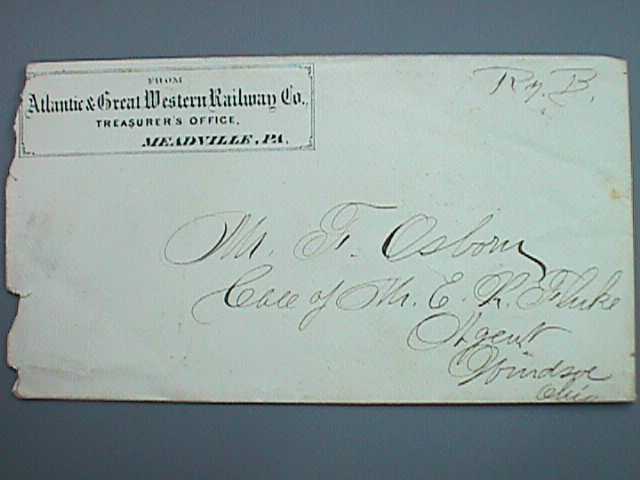 FROM
Atlantic & Great Western Railway Co.,
TREASURER'S OFFICE,
MEADVILLE, PA.
Ry. B.
Mr. F. Osborn
Care of Mr. E. R. Fluke
Agent
Windsor
Ohio